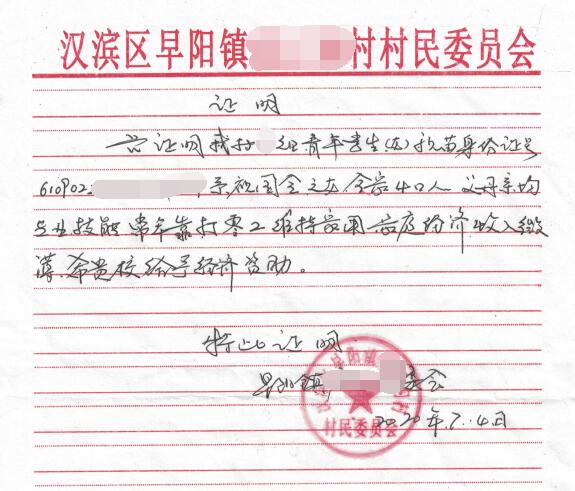 汉滨区早阳镇 村村民委员会
证明
兹证明我村 组青年学生(女)祝苗身份证号
610902 ,系祝国全之女 全家4口人 父母亲均
业技能 常年靠打零工维持家用 家庭经济收入微
薄.希贵校给予经济资助。
特此证明
早阳镇 委会
2020年7.4日
村民委员会